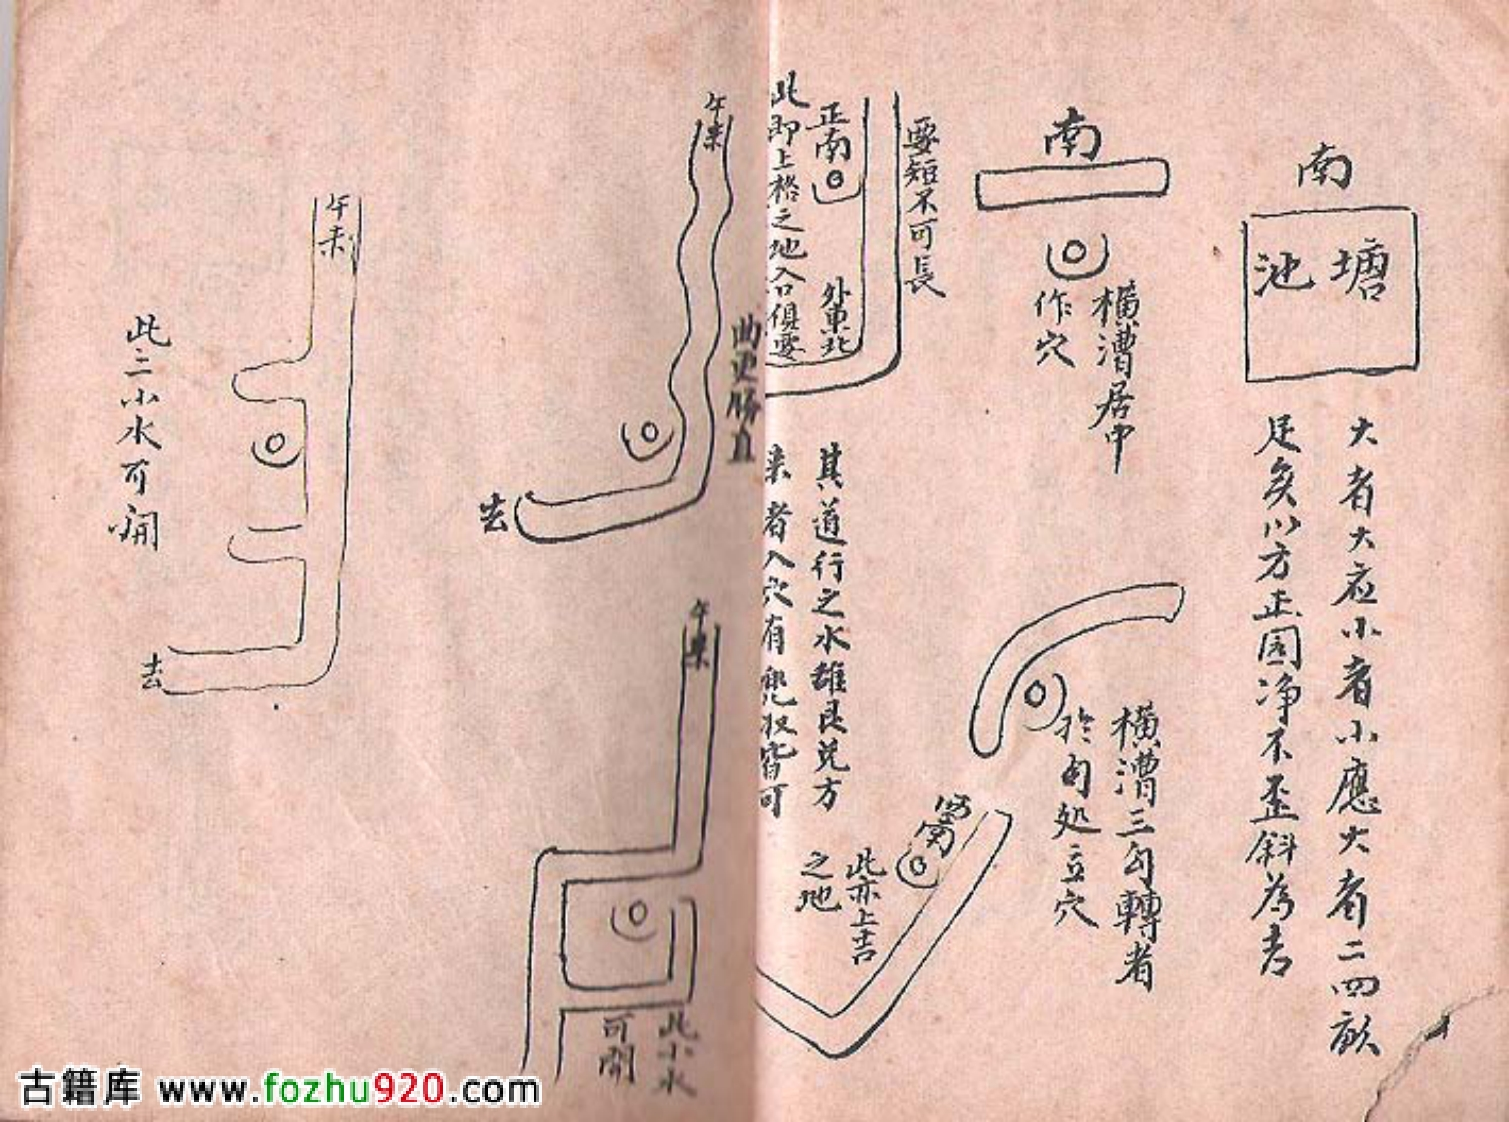 南
塘
池
大者大应小者小應大者二四畝
足矣以方正圓净不歪斜為吉
南
橫漕居中
作穴
橫漕三勾轉者
於勾処立穴
要短不可長
正南
外東北
此即上格之地入口俱要
其道行之水雖艮兑方
来者入穴有
皆可
西南
此亦上吉
之地
曲更勝直
午来
去
午来
此小水
可開
午来
去
此二小水可開
古籍库 www.fozhu920.com